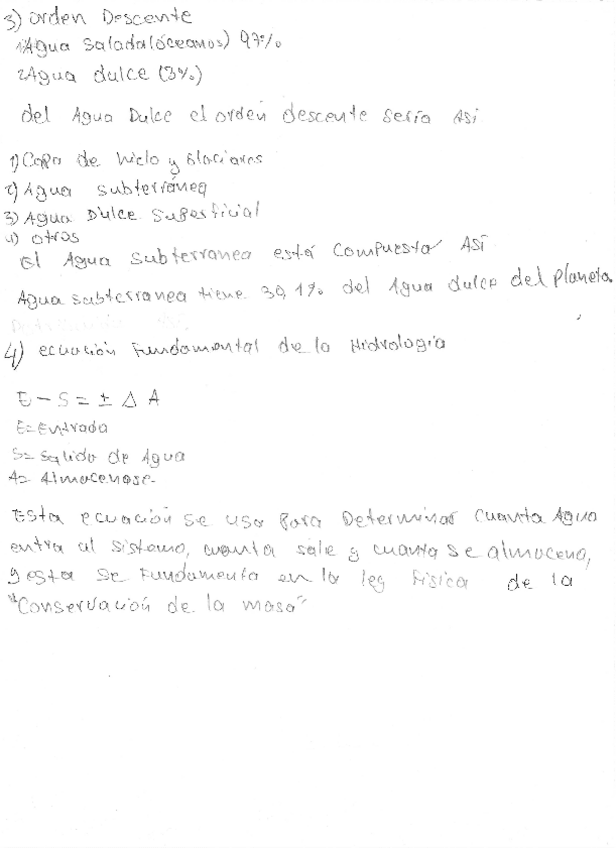 3) orden Descente
1) Agua Salada (óceanos) 97%
2 Agua dulce (3%)
del Agua Dulce el orden descente sería Asi
1) Capa de hielo y Glaciares
2) Agua subterránea
3) Agua Dulce Superficial
4) otros
El Agua Subterranea está Compuesta Así
Agua subterranea tiene 30,1% del Agua dulce del planeta.
4) ecuación Fundamental de la Hidrologia
E - S = ± Δ A
E= Entrada
S= Salida de Agua
A= Almacenase
Esta ecuación se usa para Determinar Cuanta Agua
entra al sistema, cuanta sale y cuanta se almacena,
y esta se Fundamenta en la ley Fisica de la
"Conservación de la masa"